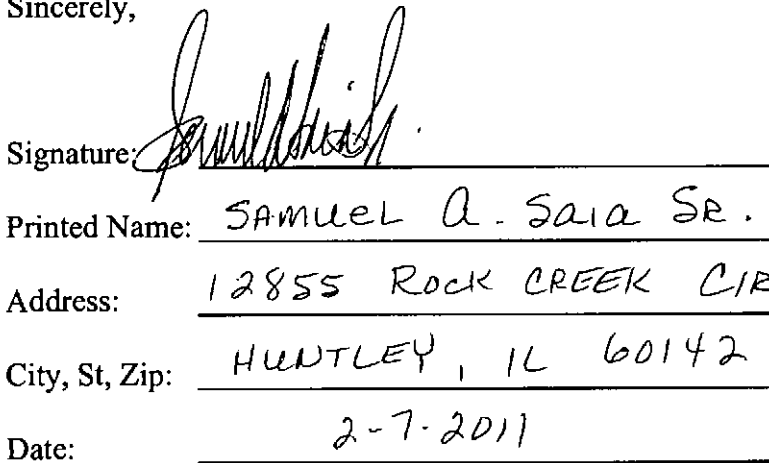 Sincerely,
Signature:
Printed Name: SAMUEL A. Saia SR.
Address: 12855 ROCK CREEK CIR
City, St, Zip: HUNTLEY, IL 60142
Date: 2-7-2011